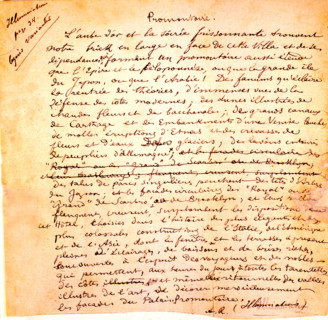 Illuminations
pag. 34
Promontoire.
L'aube d'or et la soirée frissonnante trouvent
notre brick en large en face de cette villa et de ses
dépendances, formant un promontoire aussi étendu
que l'Épire et le Péloponnèse, ou que la grande île
du Japon, ou que l'Arabie! Des fanums qu'éclaire
la rentrée des théories, d'immenses vues de la
défense des côtes modernes; des dunes illustrées de
chaudes fleurs et de bacchanales; de grands canaux
de Carthage et des Embankments d'une Venise louche,
de molles éruptions d'Etnas et des crevasses de
fleurs et d'eaux des glaciers, des lavoirs entourés
de peupliers d'Allemagne,
des talus de parcs singuliers penchant des têtes d'Arbre
du Japon; et les façades circulaires des "Royal" ou des
"Grand" de Scarbro' ou de Brooklyn; et leurs railways
flanquent, creusent, surplombent les dispositions dans cet
Hôtel, choisies dans l'histoire des plus élégantes et des
plus colossales constructions de l'Italie, de l'Amérique
et de l'Asie, dont les fenêtres et les terrasses, à présent
pleines d'éclairages, de boissons et de brises riches,
sont ouvertes à l'esprit des voyageurs et des nobles,
qui permettent, aux heures du jour, à toutes les tarentelles
des côtes, et même aux ritournelles des vallées
illustres de l'art, de décorer merveilleusement
les façades du Palais-Promontoire.
A. R. (Illuminations)